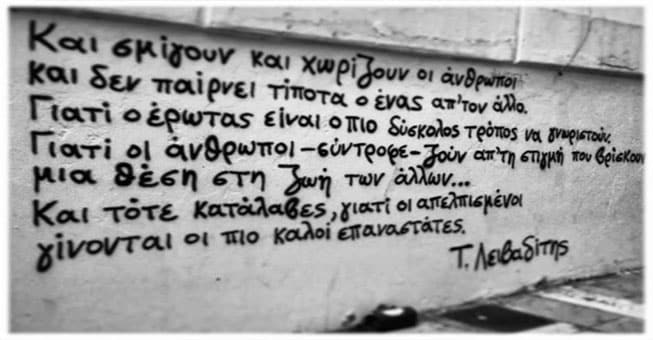 Και σμίγουν και χωρίζουν οι άνθρωποι
και δεν παίρνει τίποτα ο ένας απ'τον άλλο.
Γιατί ο έρωτας είναι ο πιο δύσκολος τρόπος να γνωριστούν.
Γιατί οι άνθρωποι-σύντροφε-ζούν απ'τη στιγμή που βρίσκουν
μια θέση στη ζωή των άλλων...
Και τότε κατάλαβες, γιατί οι απελπισμένοι
γίνονται οι πιο καλοί επαναστάτες.
Τ. Λειβαδίτης